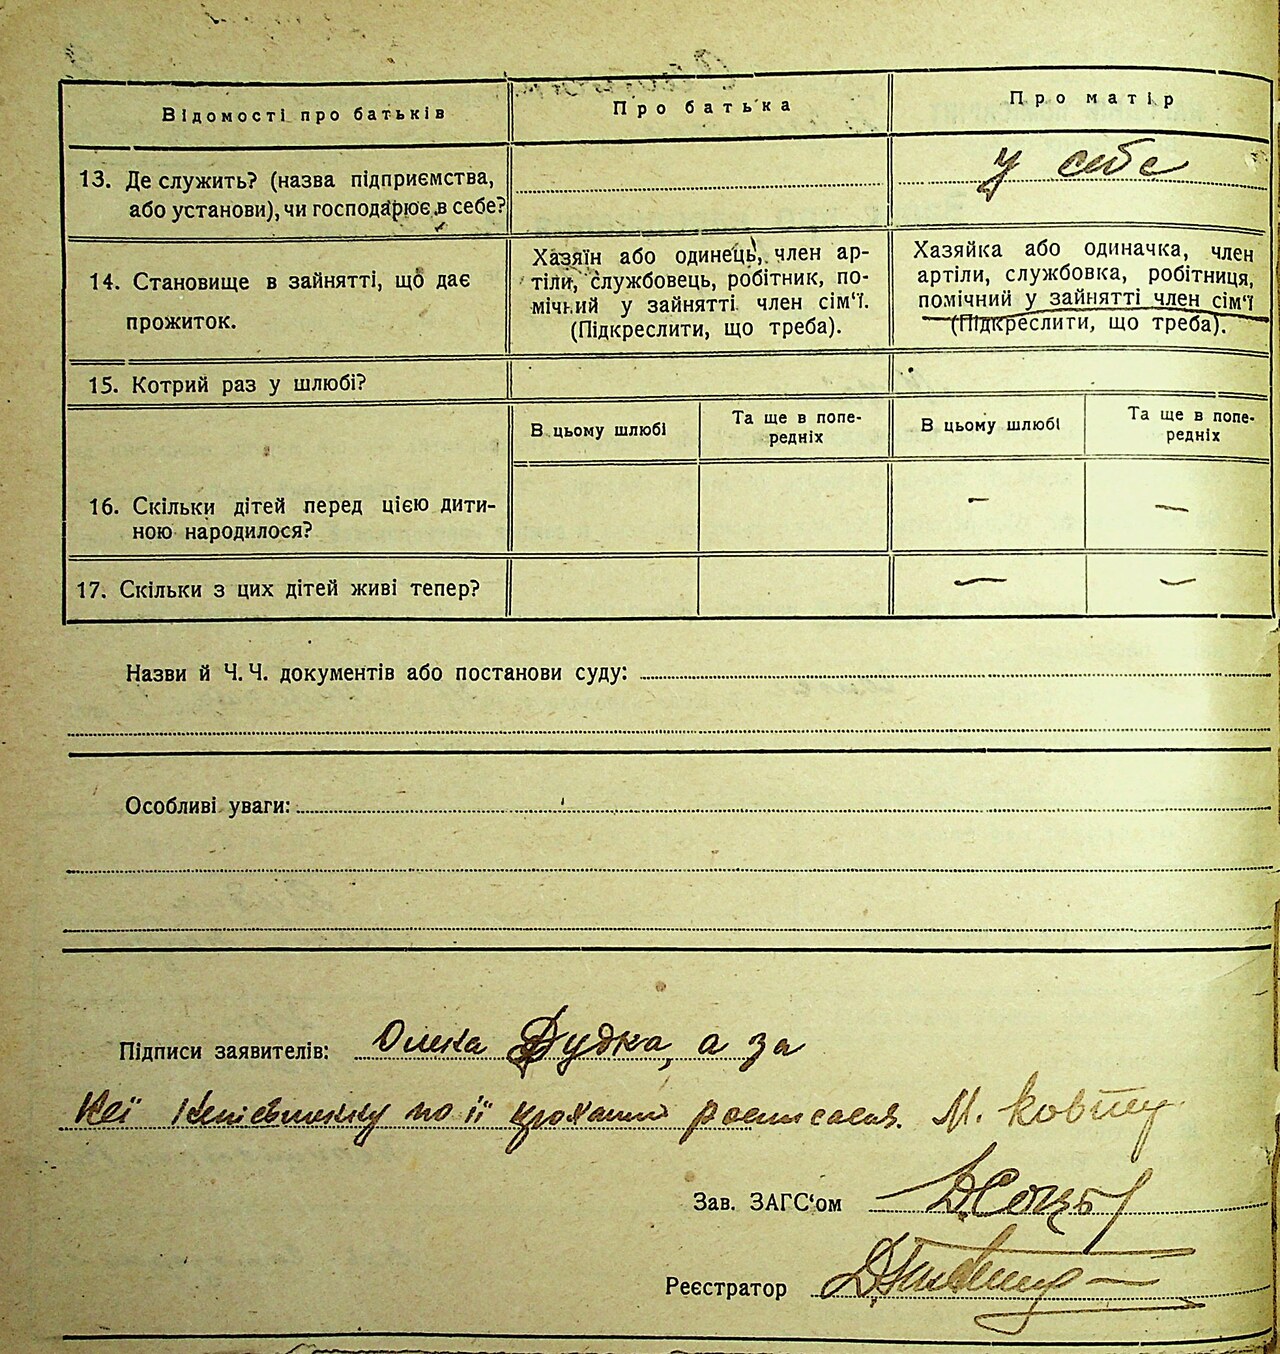 Відомості про батьків
Про батька
Про матір
13. Де служить? (назва підприємства,
або установи), чи господарює в себе?
у себе
14. Становище в зайнятті, що дає
прожиток.
Хазяїн або одинець, член ар-
тіли, службовець, робітник, по-
мічний у зайнятті член сім'ї.
(Підкреслити, що треба).
Хазяйка або одиначка, член
артіли, службовка, робітниця,
помічний у зайнятті член сім'ї
(Підкреслити, що треба).
15. Котрий раз у шлюбі?
В цьому шлюбі
Та ще в попе-
редніх
В цьому шлюбі
Та ще в попе-
редніх
16. Скільки дітей перед цією дити-
ною народилося?
—
—
17. Скільки з цих дітей живі тепер?
—
—
Назви й Ч. Ч. документів або постанови суду:
Особливі уваги:
Підписи заявителів: Олека Дудка, а за
неї по її прохання росписался. М.
Зав. ЗАГС'ом
Реєстратор